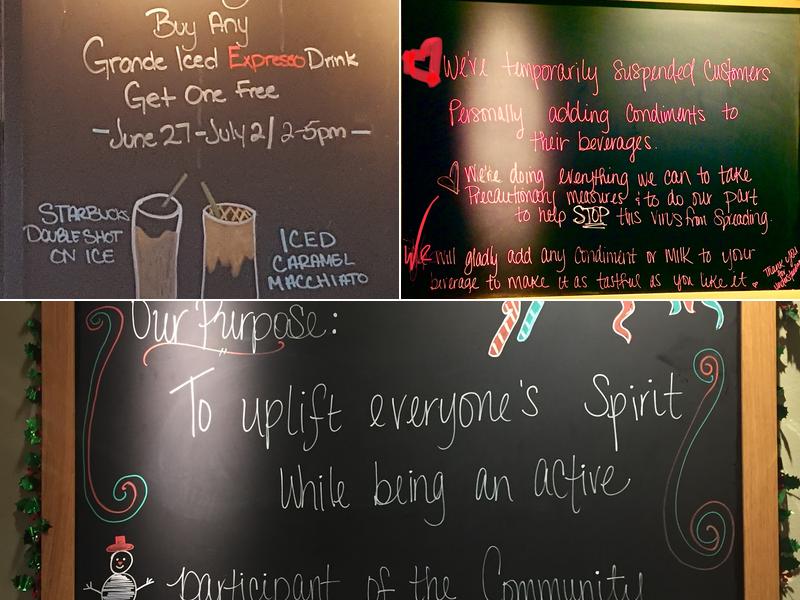 Buy Any
Grande Iced Expresso Drink
Get One Free
- June 27-July 2 / 2-5pm -
STARBUCKS
DOUBLESHOT
ON ICE
ICED
CARAMEL
MACCHIATO
We're temporarily suspended Customers
Personally adding Condiments to
their beverages.
We're doing everything we can to take
Precautionary measures & to do our part
to help STOP this virus from Spreading.
We will gladly add any Condiment or Milk to your
beverage to make it as tastful as you like it
Thank you
for
Our Purpose:
To uplift everyone's Spirit
While being an active
participant of the Community